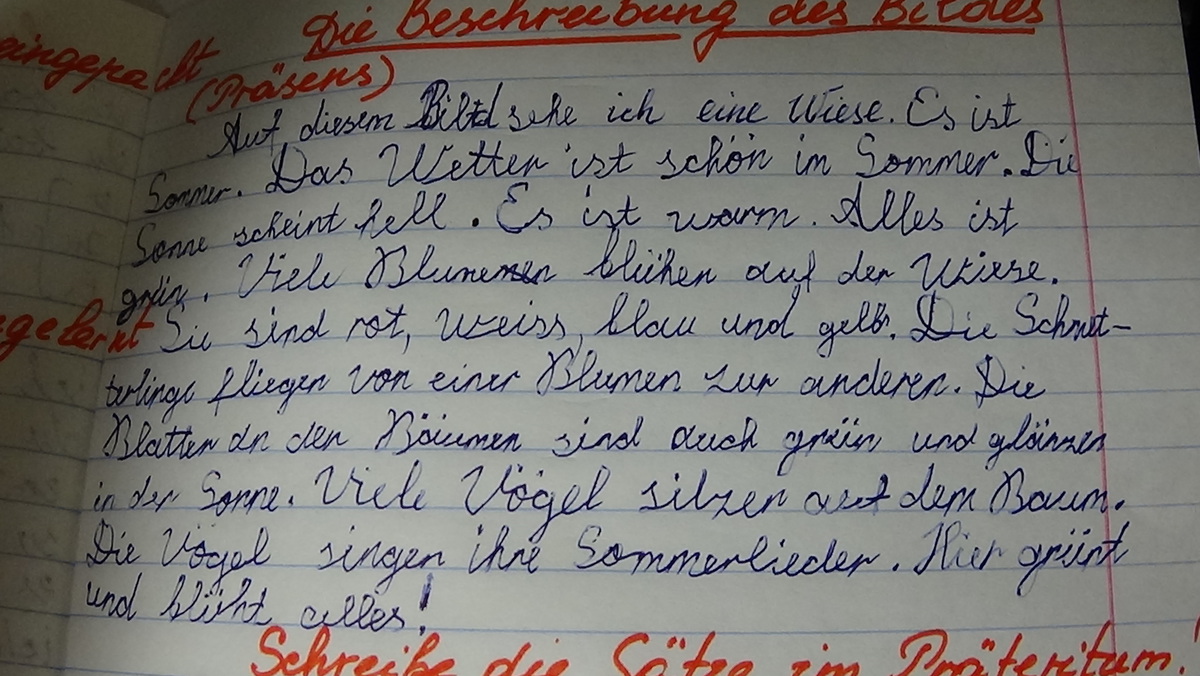 Die Beschreibung des Bildes
eingepackt
(Präsens)
Auf diesem Bild sehe ich eine Wiese. Es ist
Sommer. Das Wetter ist schön im Sommer. Die
Sonne scheint hell. Es ist warm. Alles ist
grün. Viele Blumen blühen auf der Wiese.
gelernt
Sie sind rot, weiss, blau und gelb. Die Schmet-
terlinge fliegen von einer Blumen zur anderen. Die
Blätter an den Bäumen sind auch grün und glänzen
in der Sonne. Viele Vögel sitzen auf dem Baum.
Die Vögel singen ihre Sommerlieder. Hier grünt
und blüht alles!
Schreibe die Sätze im Präteritum!